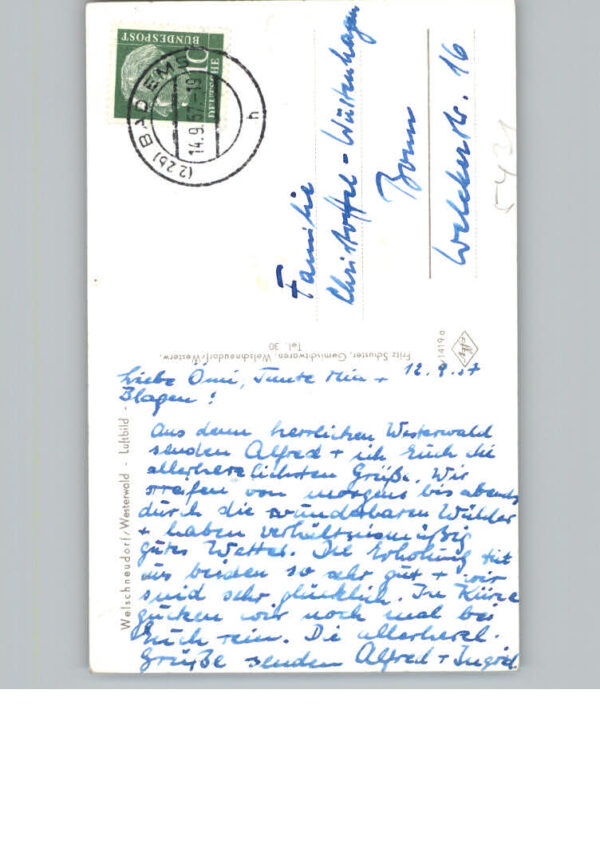 DEUTSCHE
BUNDESPOST
10
(22b) BAD EMS
14.9.57-19
h
Familie
Christoffel-Wüstenhagen
Bonn
Welckerstr. 16
5431
Fritz Schuster, Gemischtwaren, Welschneudorf/Westerw.
Tel. 30
Welschneudorf/Westerwald - Luftbild -
12.9.57
Liebe Omi, Tante Mia +
Blagen!
Aus dem herrlichen Westerwald
senden Alfred + ich Euch die
allerherzlichsten Grüße. Wir
streifen von morgens bis abends
durch die wunderbaren Wälder
+ haben verhältnismäßig
gutes Wetter. Die Erholung tut
uns beiden so sehr gut + wir
sind sehr glücklich. In Kürze
gucken wir noch mal bei
Euch rein. Die allerherzl.
Grüße senden Alfred + Ingrid